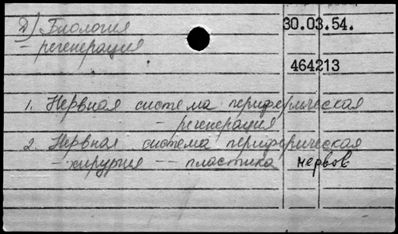 Д) Биология
30.03.54.
– регенерация
464213
1. Нервная система периферическая
– регенерация
2. Нервная система периферическая
– хирургия – – пластика нервов